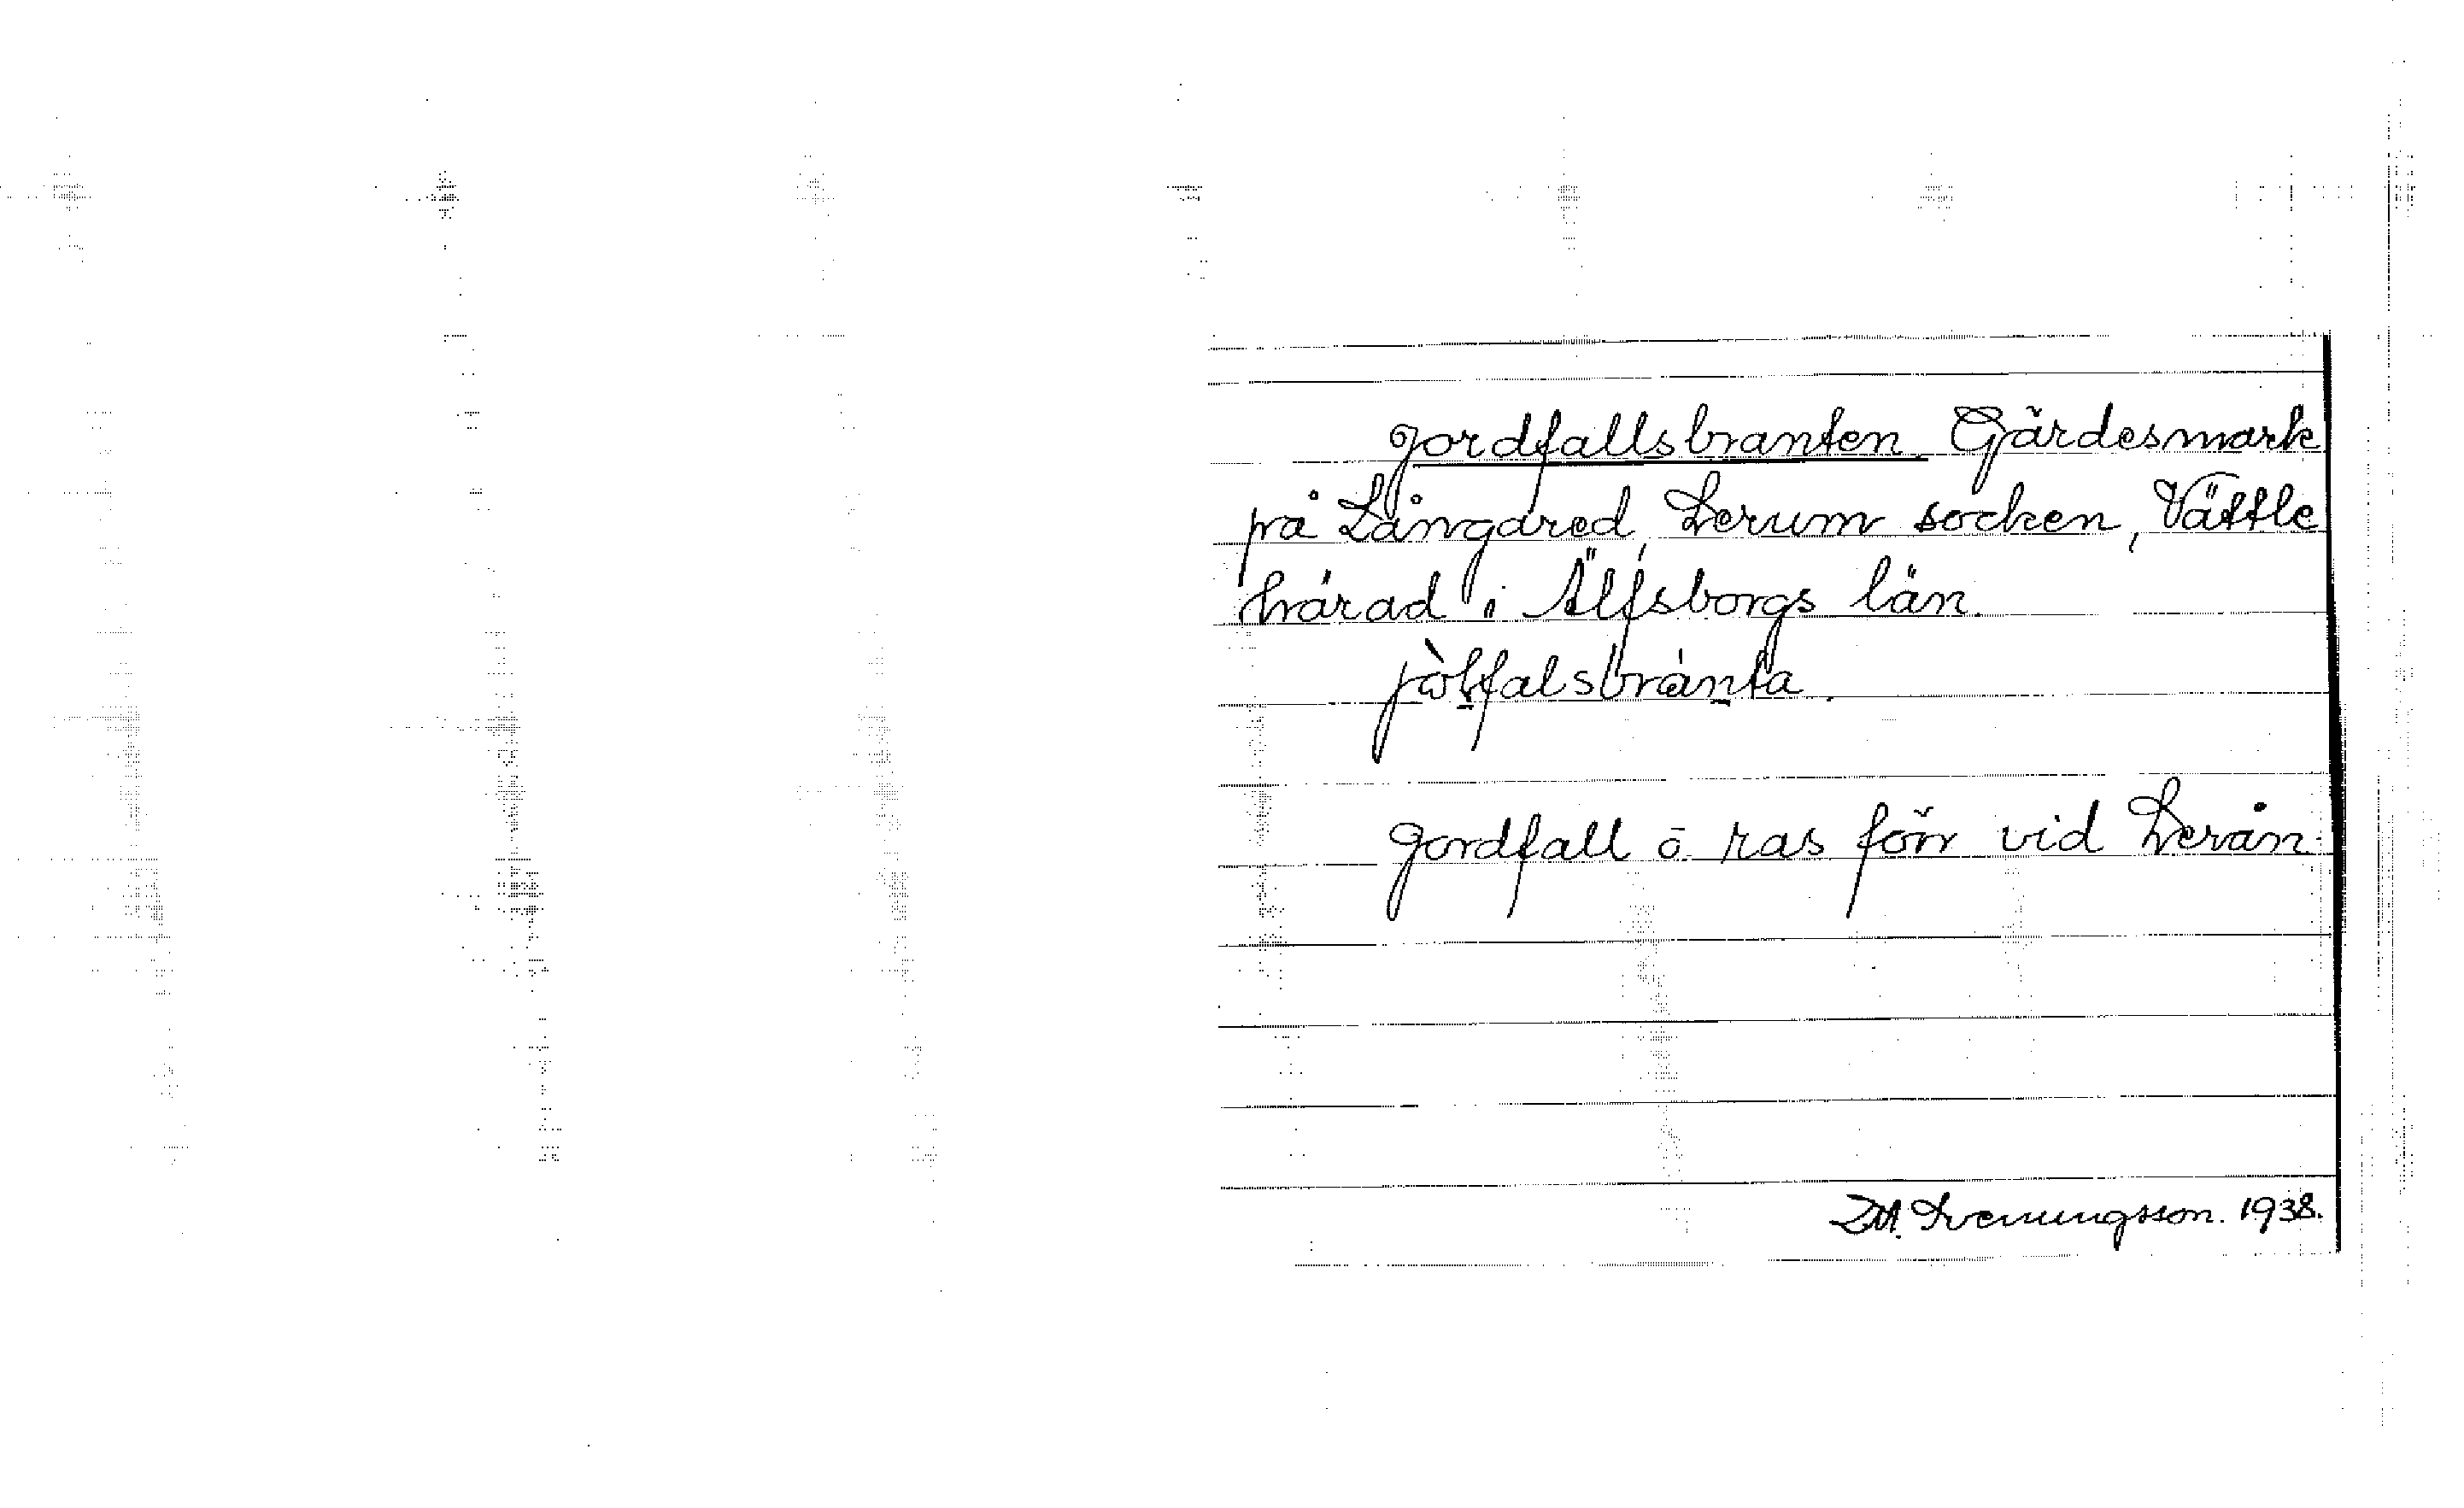 Jordfallsbranten. Gärdesmark
på Långared, Lerum socken, Vättle
härad i Älfsborgs län.
jòlfalsbránta.
Jordfall o. ras förr vid Lerån.
Svenungsson. 1938.